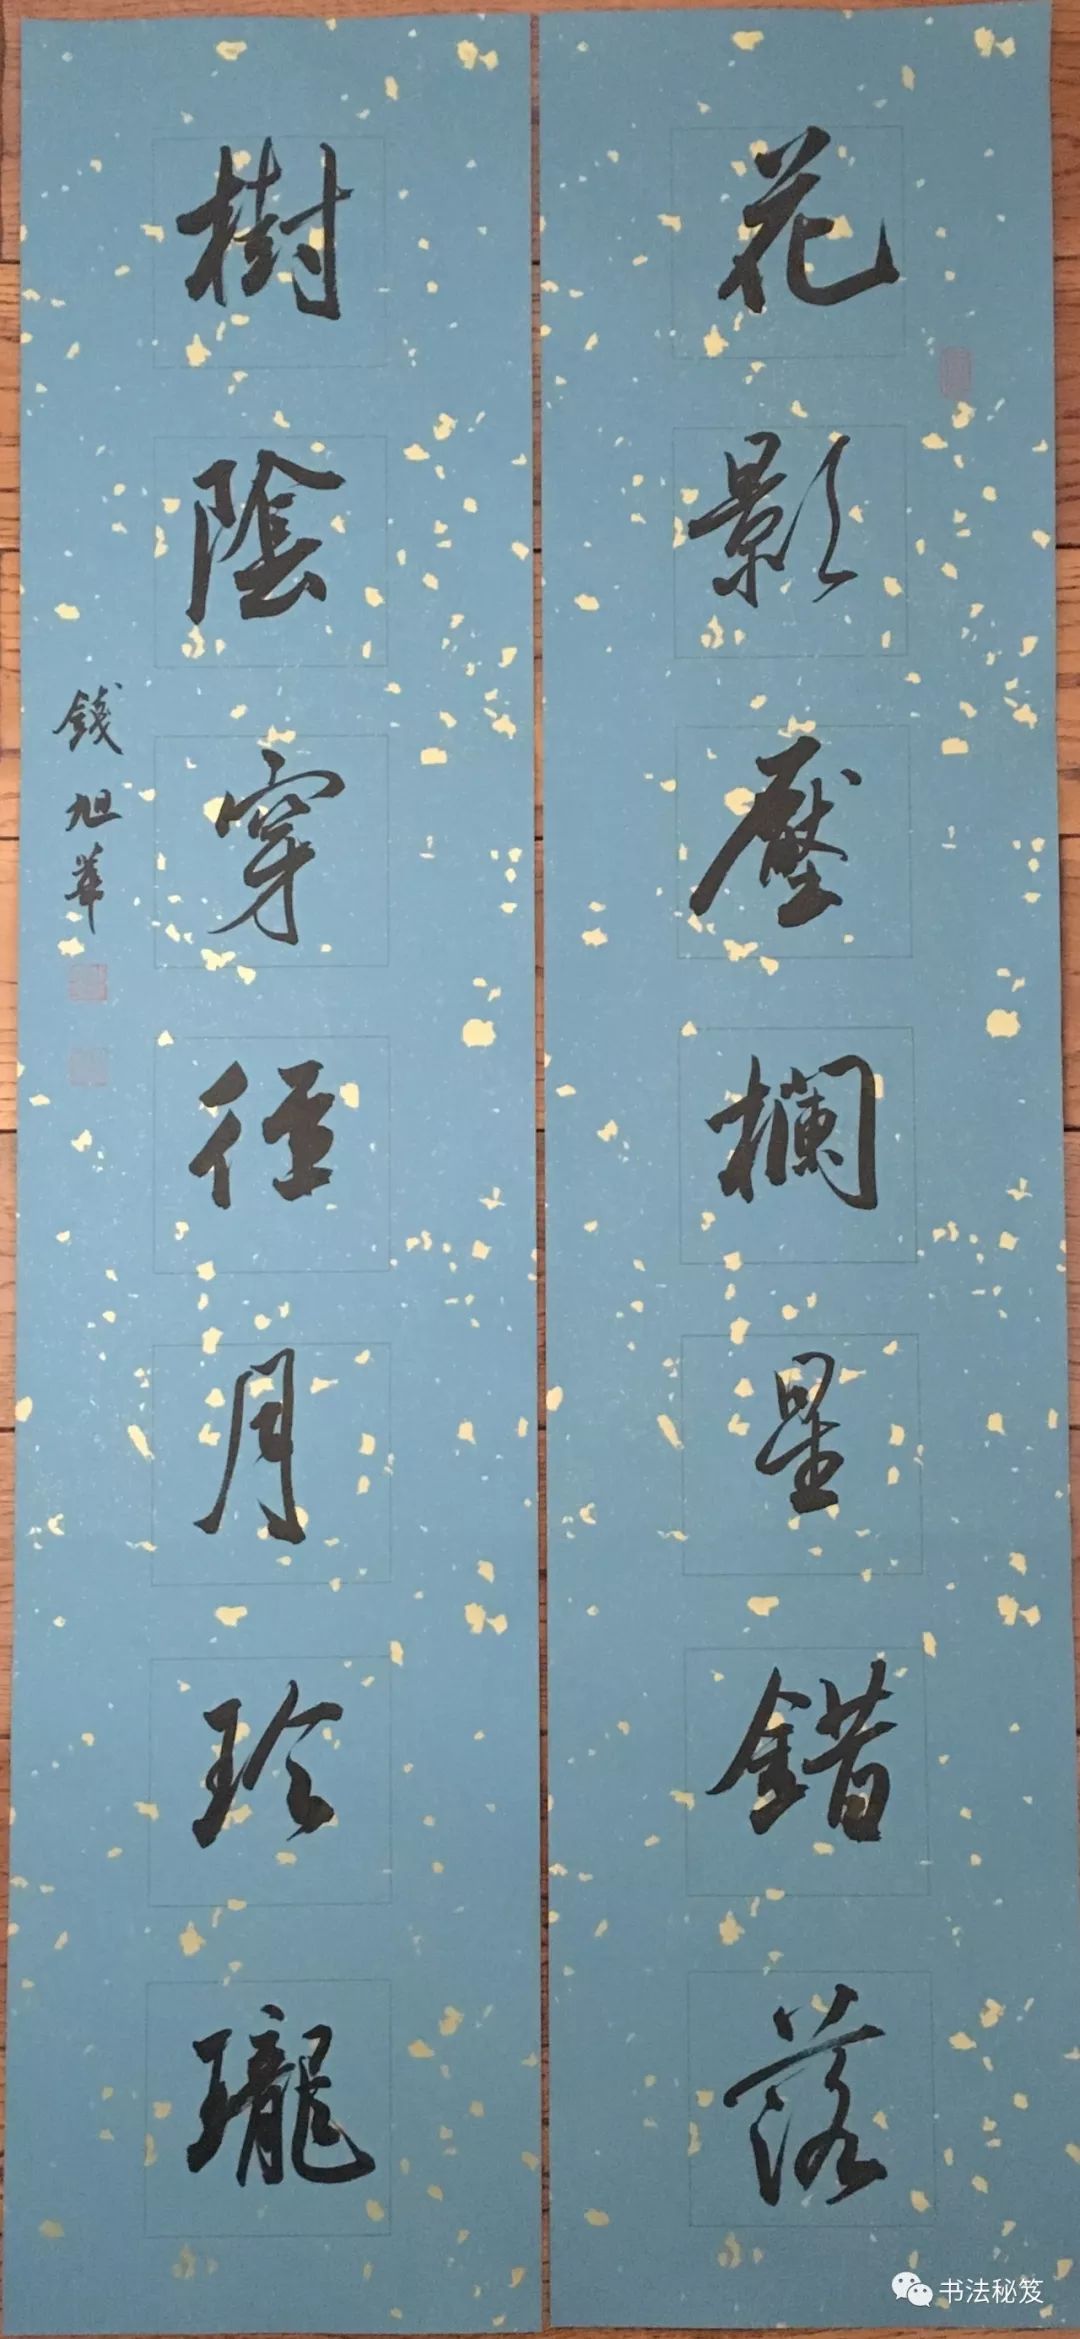 花影壓欄星錯落
樹陰穿徑月玲瓏
錢旭華
书法秘笈